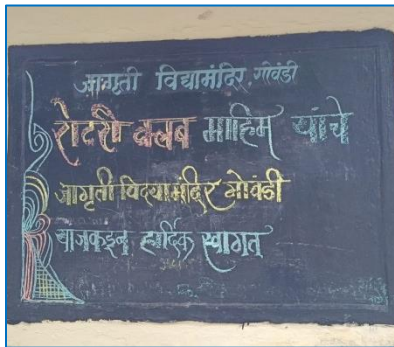 जागृती विद्यामंदिर गोवंडी
रोटरी क्लब माहिम यांचे
जागृती विद्यामंदिर गोवंडी
हार्दिक स्वागत